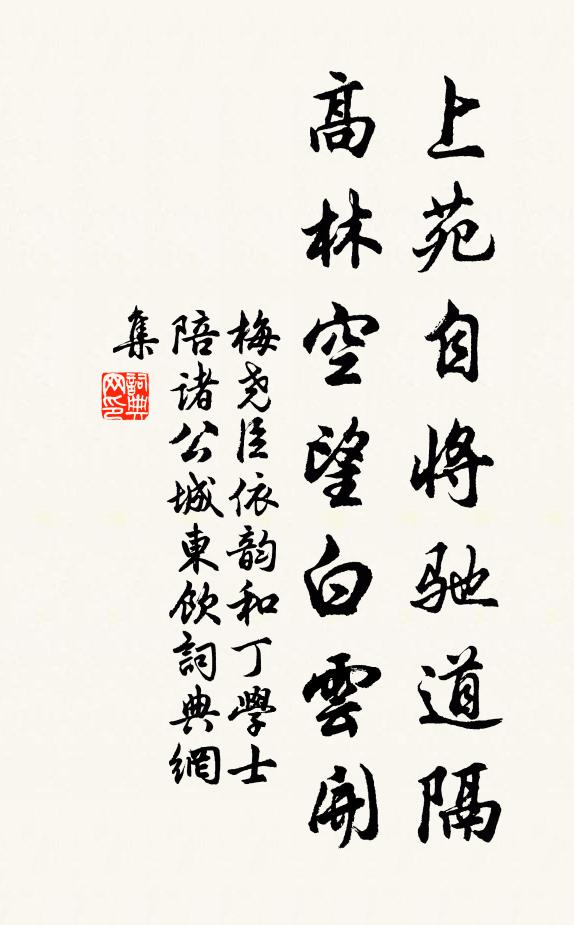 上苑自將馳道隔
高林空望白雲開
梅尧臣依韵和丁學士
陪诸公城東飲詞典網
集
詞典网印